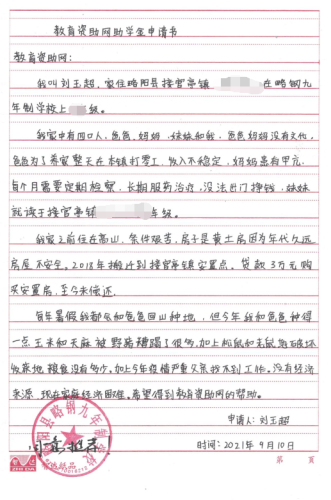 教育资助网助学金申请书
教育资助网:
我叫刘玉超,家住略阳县接官亭镇 在略钢九
年制学校上 级。
我家中有四口人,爸爸、妈妈、妹妹和我。爸爸妈妈没有文化,
爸爸为了养家整天在本镇打零工,收入不稳定,妈妈患有甲亢,
每个月需要定期检查,长期服药治疗,没法出门挣钱,妹妹
就读于接官亭镇 年级。
我家之前住在高山,条件艰苦,房子是黄土房因为年代久远
房屋不安全。2018年搬迁到接官亭镇安置点。贷款3万元购
买安置房,至今未偿还。
每年暑假我都会和爸爸回山种地,但今年我和爸爸种得
一点玉米和天麻被野猪糟蹋了很多,加上松鼠和老鼠
收获地粮食没有多少。加上今年疫情严重父亲找不到工作。没有经济
来源,现在家庭经济困难,希望得到教育资助网的帮助。
申请人:刘玉超
同意推荐!
时间:2021年9月10日
略阳县略钢九年制学校
第 页